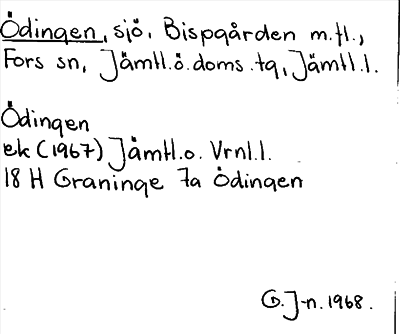 Ödingen, sjö, Bispgården m.fl.,
Fors sn, Jämtl.ö.doms.tg, Jämtl.l.
Ödingen
ek (1967) Jämtl.o. Vrnl.l.
18 H Graninge 7a Ödingen
G.J-n. 1968.